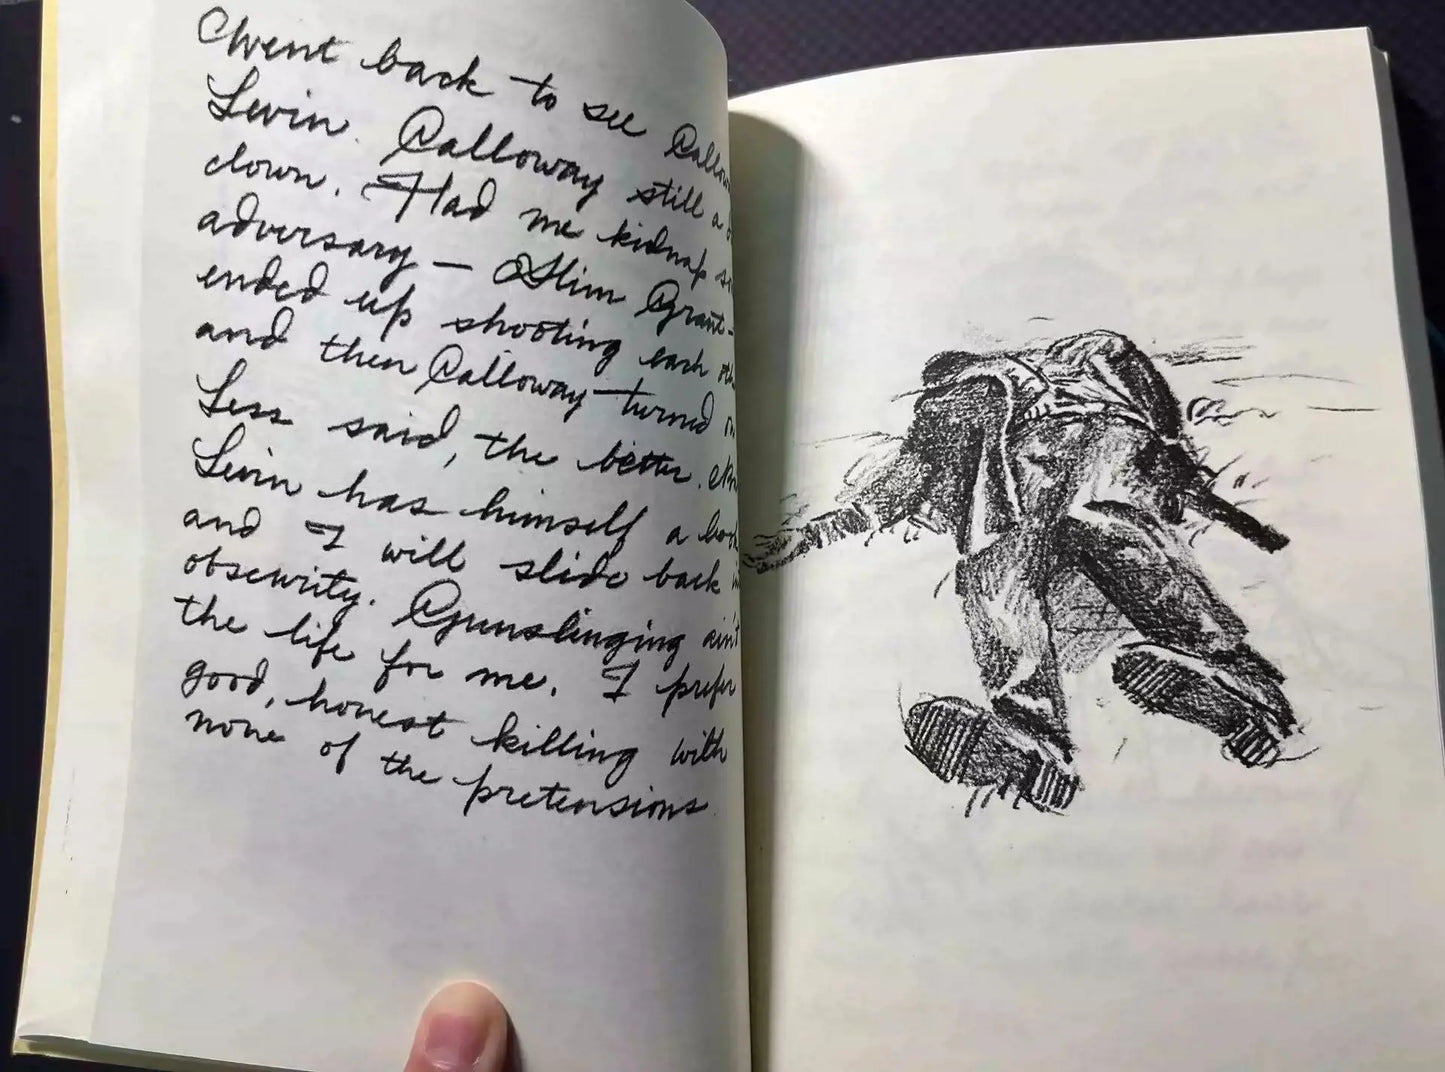 Went back to see
Levin. Calloway still a
clown. Had me kidnap
adversary — Slim Grant —
ended up shooting each
and then Calloway turned
Less said, the better.
Levin has himself a
and I will slide back
obscurity. Gunslinging ain't
the life for me. I prefer
good, honest killing with
none of the pretensions.